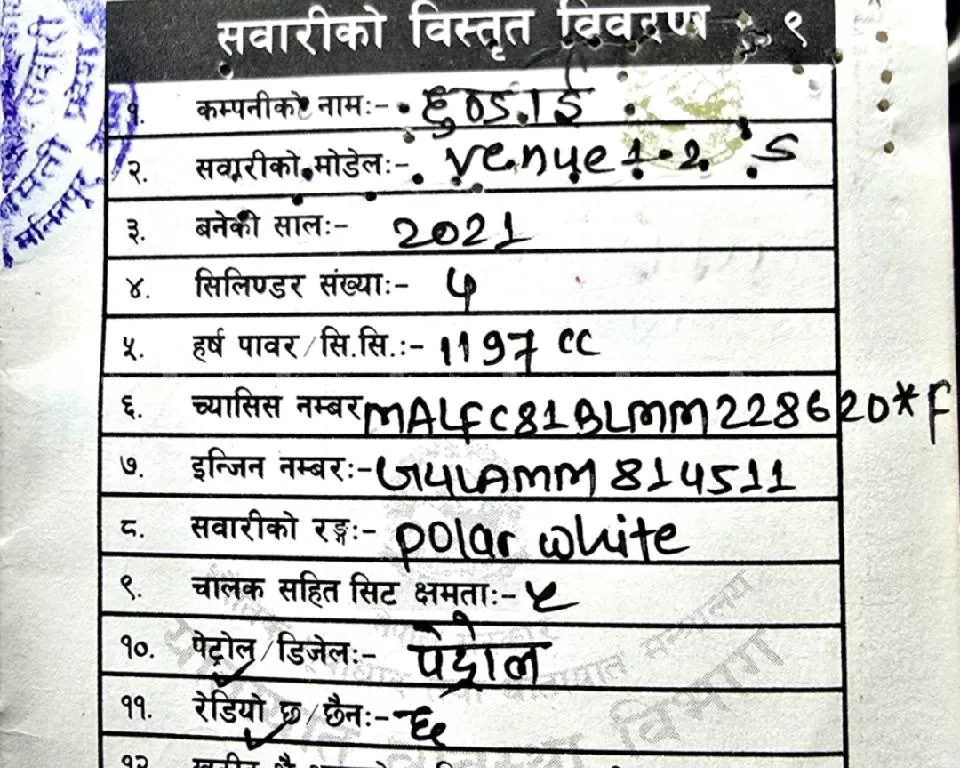 सवारीको विस्तृत विवरण : १
१. कम्पनीको नामः- हुण्डाई
२. सवारीको मोडेलः- Venue 1.2 S
३. बनेकी सालः- 2021
४. सिलिण्डर संख्याः- ४
५. हर्ष पावर/सि.सि.:- 1197 CC
६. च्यासिस नम्बर MALFC81BLMM228620*F
७. इन्जिन नम्बरः- G4LAMM814511
८. सवारीको रङ्गः- polar white
९. चालक सहित सिट क्षमताः- ५
१०. पेट्रोल/डिजेलः- पेट्रोल
११. रेडियो छ/छैनः- छ
१२.
यातायात व्यवस्था विभाग